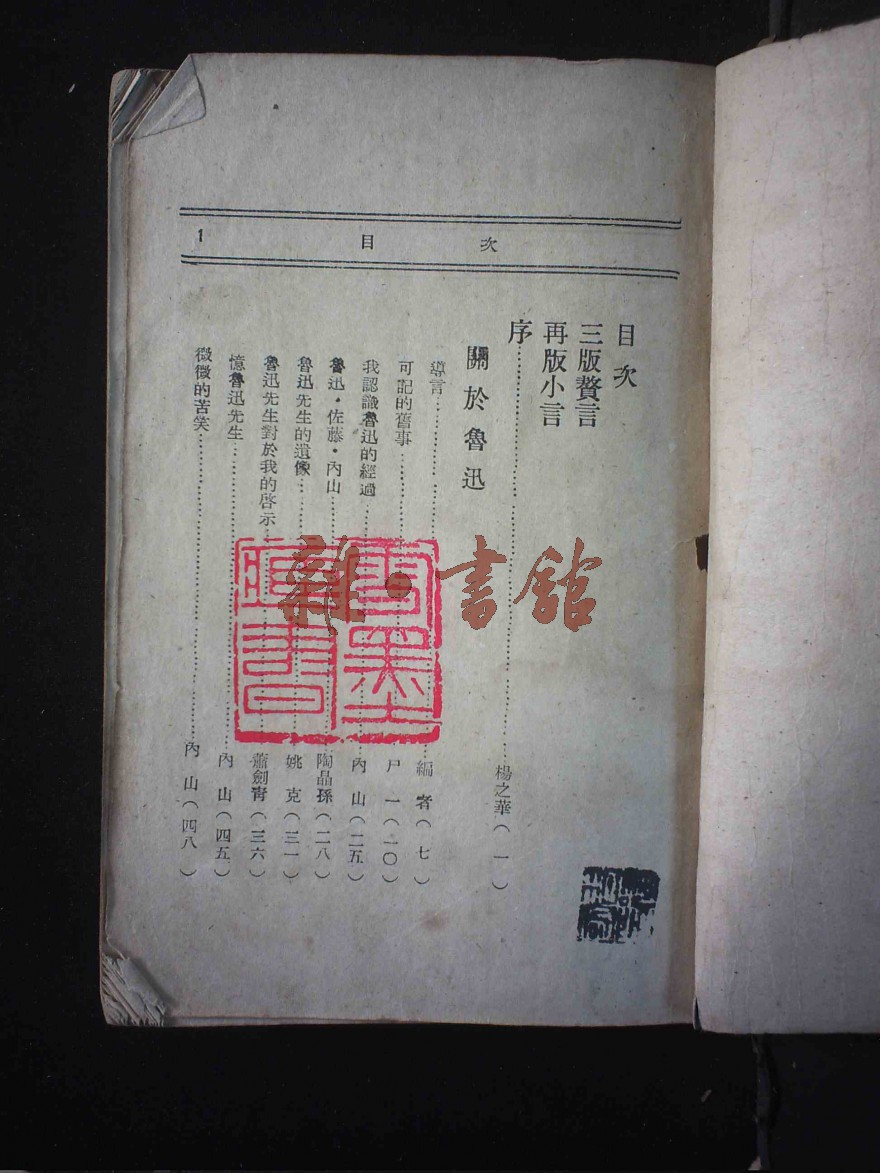 目次
1
目次
三版贅言
再版小言
序……………………楊之華（一）
關於魯迅
導言……………………編者（七）
可記的舊事……………………尸一（一〇）
我認識魯迅的經過……………………內山（二五）
魯迅・佐藤・內山……………………陶晶孫（二八）
魯迅先生的遺像……………………姚克（三一）
魯迅先生對於我的啓示……………………蕭劍青（三六）
憶魯迅先生……………………內山（四五）
微微的苦笑……………………內山（四八）
雜・書館